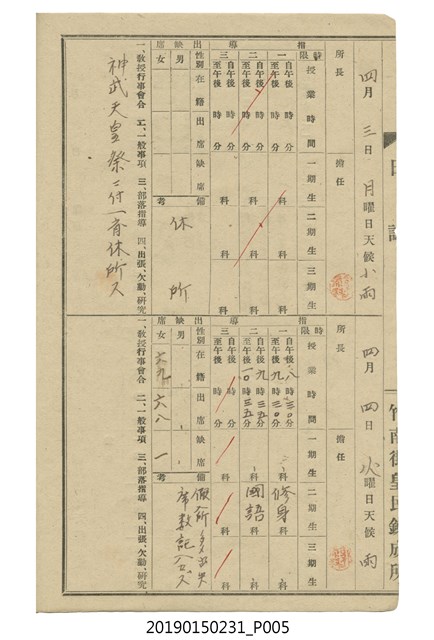 日誌
竹南街皇民鍊成所
四月三日月曜日天候小雨
所長
擔任
指導
時限
授業時間
一期生
二期生
三期生
一
自午後 時 分
至午後 時 分
科
科
科
二
自午後 時 分
至午後 時 分
科
科
科
三
自午後 時 分
至午後 時 分
科
科
科
出缺席
性別
在籍
出席
缺席
備考
男
女
休所
一、教授行事會合 二、一般事項 三、部落指導 四、出張、欠勤、研究
神武天皇祭ニ付一齊休所ス
四月四日火曜日天候雨
所長
擔任
指導
時限
授業時間
一期生
二期生
三期生
一
自午後八時三〇分
至午後九時〇分
科
修身科
科
二
自午後九時三五分
至午後一〇時三五分
科
國語科
科
三
自午後 時 分
至午後 時 分
科
科
科
出缺席
性別
在籍
出席
缺席
備考
男
女 六九 六八 一
一、教授行事會合 二、一般事項 三、部落指導 四、出張、欠勤、研究
20190150231_P005